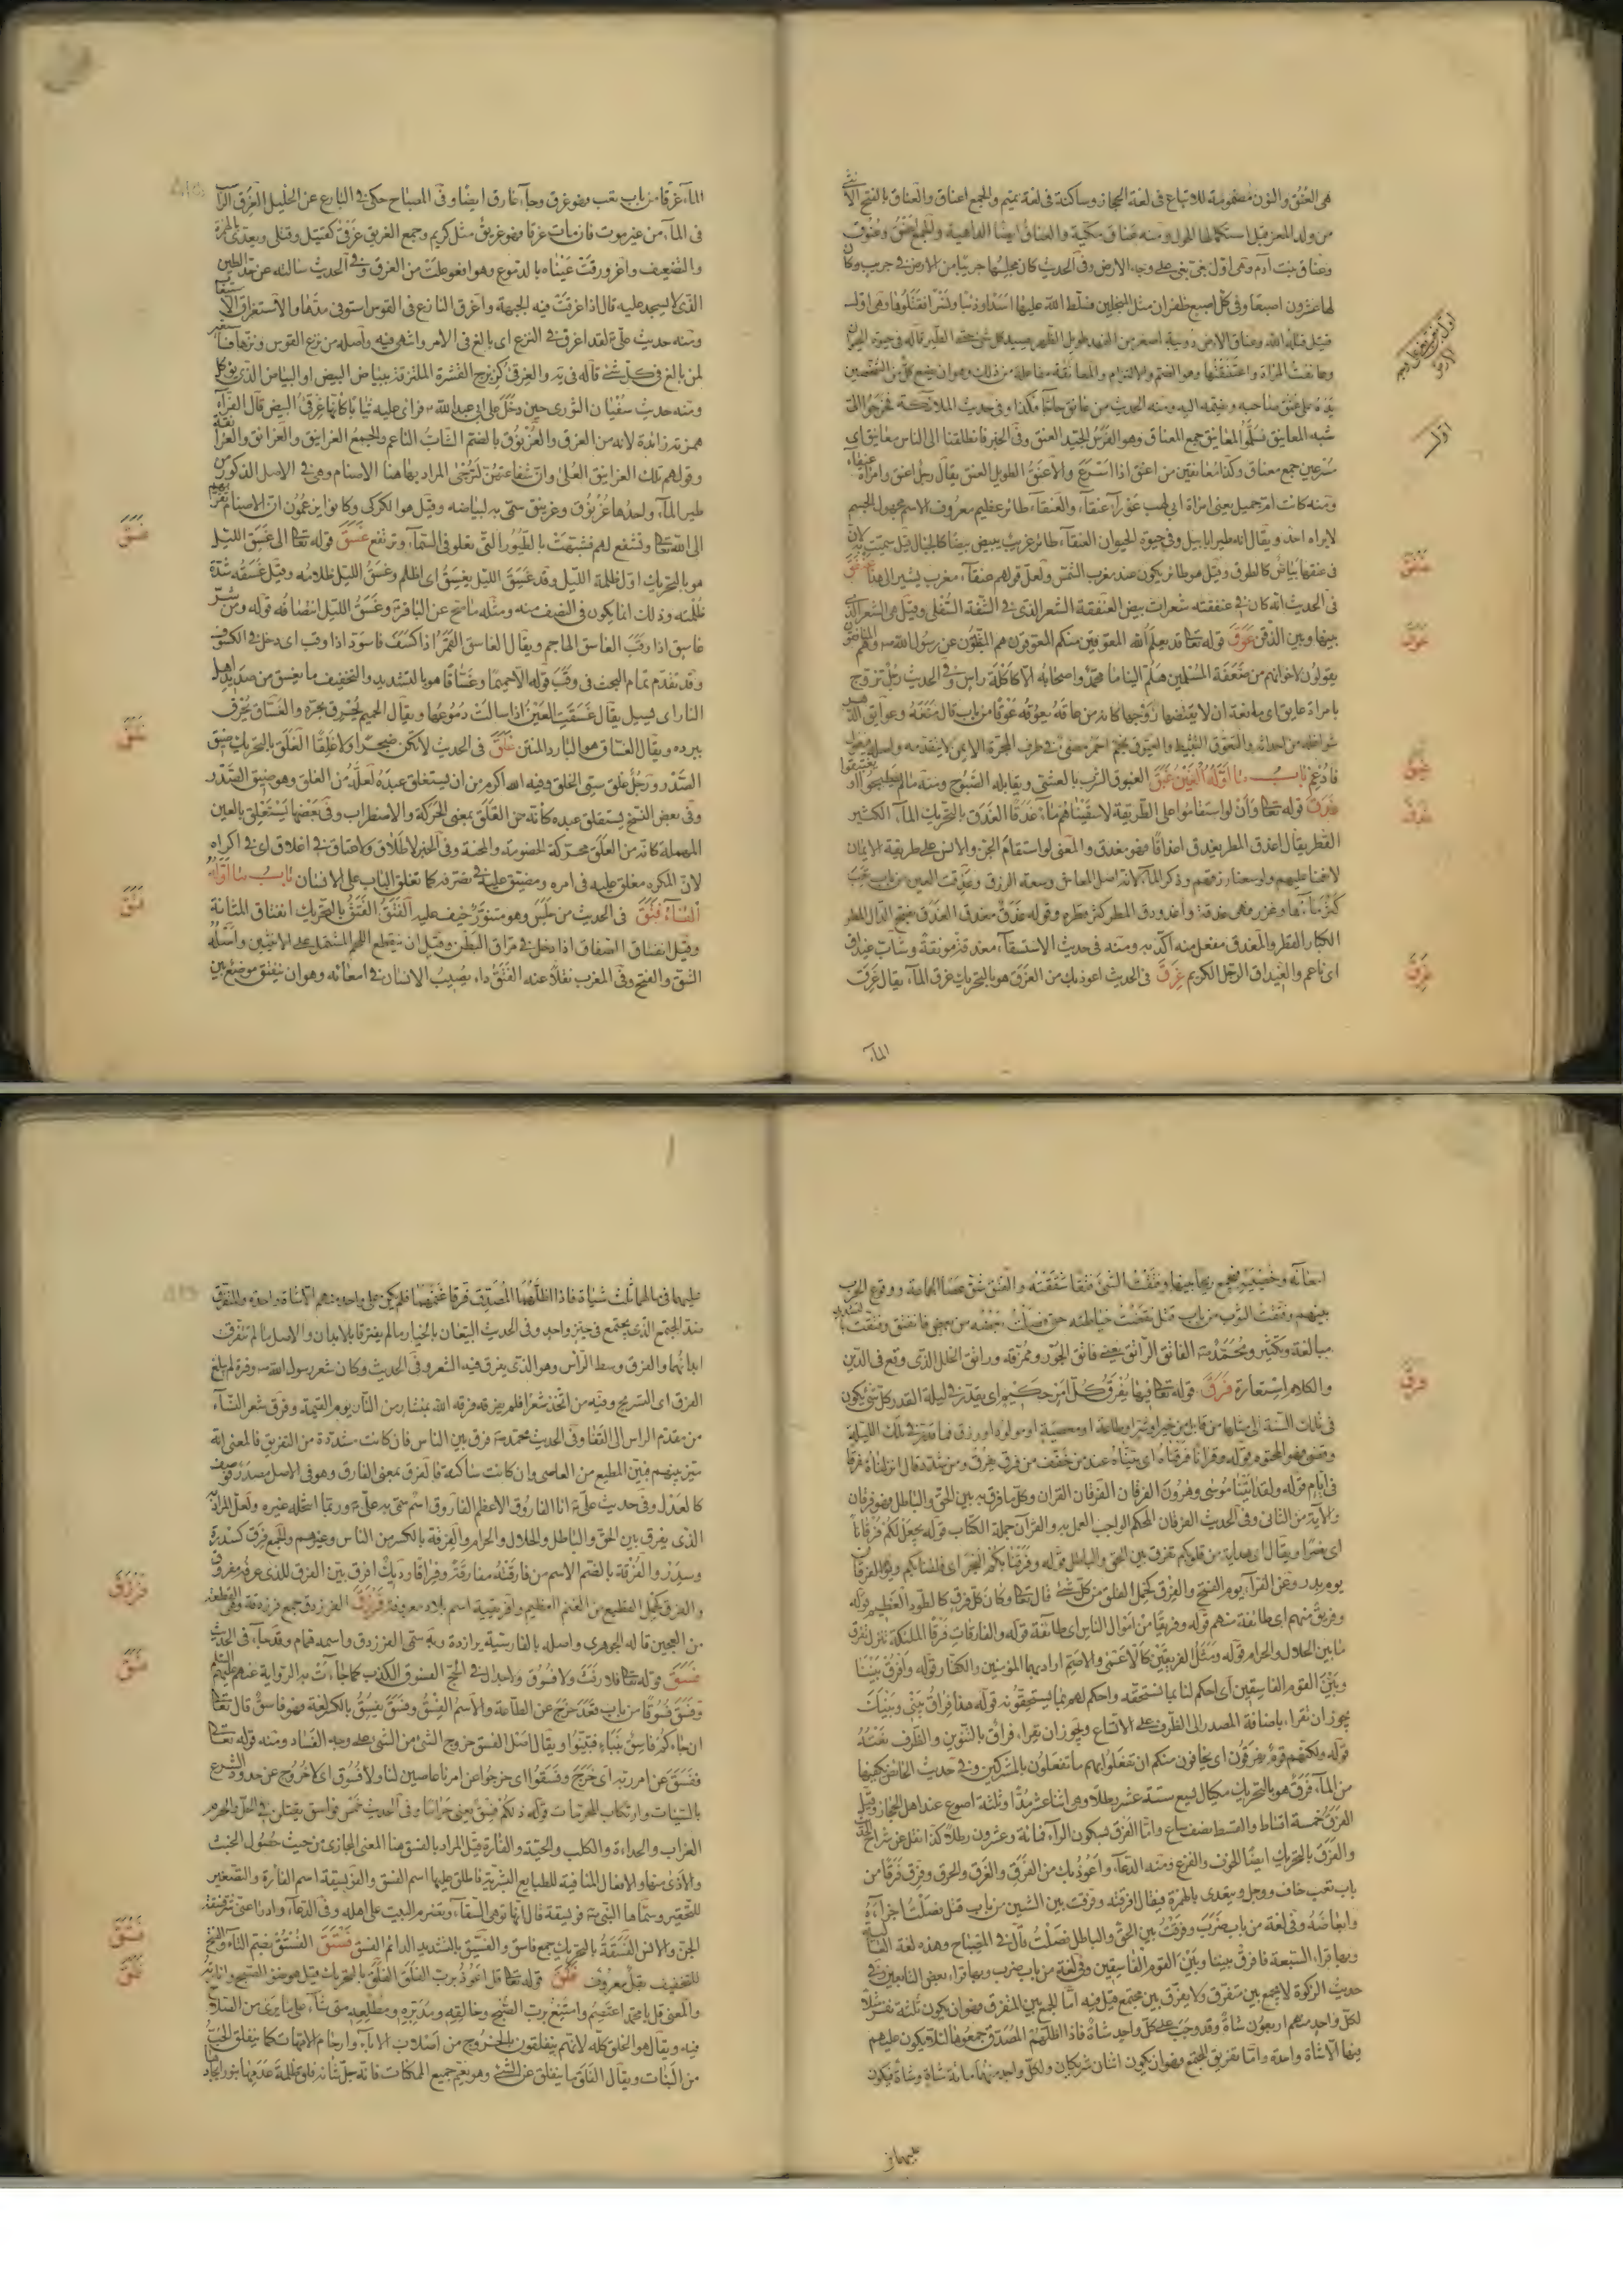 هى العُنُق والنون مضمومة للاتباع فى لغة الحجاز وساكنة فى لغة تميم والجمع اعناق والعناق بالفتح الأنثى
من ولد المعز قبل استكمالها الحول ومنه عناق مكية والعناق ايضا الداهية والجمع اعنق وعنوق
وعناق بنت آدم وهى اول بغى بغى على وجه الارض وفى الحديث كان مجلسها جريبا من الارض فى جريب وكان
لها عشرون اصبعا وفى كل اصبع ظفران مثل المنجلين فسلط الله عليها اسدا وذئبا ونسرا فقتلوها وهى اول
قتيل قتله الله وعناق الارض دويبة اصغر من الفهد طويل الظهر يصيد كل شئ حتى الطير قاله فى حيوة الحيوان
وعانقت المرأة واعتنقتها وهو الضم والالتزام والمعانقة مفاعلة من ذلك وهو ان يضع كل من الشخصين
يده على عنق صاحبه وضمه اليه ومنه الحديث من عانق حاجا كذا وفى حديث الملائكة
شبه المعانيق المعانيق جمع المعناق وهو الفرس الجيد العنق وفى الخبر فانطلقنا الى الناس معانيق اى
مسرعين جمع معناق وكذا معانقين من اعنق اذا اسرع والأعنق الطويل العنق يقال رجل اعنق وامرأة عنقاء
ومنه كانت ام جميل يعنى امرأة ابى لهب عوراء عنقاء والعنقاء طائر عظيم معروف الاسم مجهول الجسم
لايراه احد ويقال انه طير ابابيل وفى حيوة الحيوان العنقاء طائر غريب يبيض بيضا كالجبال قيل سميت لان
فى عنقها بياض كالطوق وقيل هو طائر يكون عند مغرب الشمس ولعل قولهم عنقاء مغرب يشير الى هذا عنفق
فى الحديث انه كان فى عنفقته شعرات بيض العنفقة الشعر الذى فى الشفة السفلى وقيل هى الشعر الذى
بينها وبين الذقن عوق قوله تعالى قد يعلم الله المعوقين منكم المعوقون هم المثبطون عن رسول الله ص وهم المنافقون
يقولون لاخوانهم من ضعفة المسلمين هلم الينا ما محمد واصحابه الا كاكلة راس وفى الحديث رجل تزوج
بامرأة عايق اى مانعة ان لا يقتضها زوجها كانه من عاقه يعوقه عوقا من باب قال منعه وعوايق الدهر
شواغله من احداثه والتعوق التثبط والعيوق نجم احمر مضئ فى طرف المجرة الايمن لا يتقدمه واصله فيعول
فادغم باب ما اوله الغين غبق الغبوق الشرب بالعشى ويقابله الصبوح ومنه مالم تصطبحوا او تغتبقوا
غدق قوله تعالى وان لو استقاموا على الطريقة لاسقيناهم ماء غدقا الغدق بالتحريك الماء الكثير
القطر يقال اغدق المطر يغدق اغداقا فهو مغدق والمعنى لو استقام الجن والانس على طريقة الايمان
لانعمنا عليهم ولوسعنا رزقهم وذكر الماء لانه اصل المعاش وسعة الرزق وغدقت العين من باب تعب
كثر ماءها وغزر فهى غدقة واغدودق المطر كثر قطره وقوله غدق مغدق الغدق بفتح الدال المطر
الكبار القطر والمغدق مفعل منه اكد به ومنه فى حديث الاستسقاء مغدقة مونقة وشاب غيداق
اى ناعم والغيداق الرجل الكريم غرق فى الحديث اعوذ بك من الغرق هو بالتحريك غرق الماء يقال غرق
الماء
عنفق
عوق
غبق
غدق
غرق
الماء غرقا من باب تعب فهو غرق وجاء غارق ايضا وفى المصباح حكى فى البارع عن الخليل الغرق الراسب
فى الماء من غير موت فان مات غرقا فهو غريق مثل كريم وجمع الغريق غرقى كقتيل وقتلى ويعدى بالهمزة
والتضعيف واغرورقت عيناه بالدموع وهو افعوعلت من الغرق وفى الحديث سالته عن حد الطين
الذى لا يسجد عليه قال اذا غرقت فيه الجبهة واغرق النازع فى القوس استوفى مدها والاستغراق الاستيعاب
ومنه حديث على ع لقد اغرق فى النزع اى بالغ فى الامر وانتهى فيه واصله من نزع القوس ومدها فاستعير
لمن بالغ فى كل شئ قاله فى يه والغرقئ كزبرج القشرة الملتزقة ببياض البيض او البياض الذى يؤكل
ومنه حديث سفيان الثورى حين دخل على ابى عبد الله ع فراى عليه ثيابا كانها غرقئ البيض قال الفراء
همزته زائدة لانه من الغرق والغرنوق بالضم الشاب الناعم والجمع الغرانيق والغرانق والغرانقة
وقولهم تلك الغرانيق العلى وان شفاعتهن لترتجى المراد بها هنا الاصنام وهى فى الاصل الذكور من
طير الماء واحدها غرنوق وغرنيق سمى به لبياضه وقيل هو الكركى وكانوا يزعمون ان الاصنام تقربهم
الى الله تعالى وتشفع لهم فشبهت بالطيور التى تعلو فى السماء وترتفع غسق قوله تعالى الى غسق الليل
هو بالتحريك اول ظلمة الليل وقد غسق الليل يغسق اى اظلم وغسق الليل ظلامه وقيل غسقه شدة
ظلمته وذلك انما يكون فى النصف منه ومثله ما صح عن الباقر ع وغسق الليل انتصافه قوله ومن شر
غاسق اذا وقب الغاسق الهاجم ويقال الغاسق القمر اذا كسف فاسود اذا وقب اى دخل فى الكسوف
وقد تقدم تمام البحث فى وقب قوله الا حميما وغساقا هو بالتشديد والتخفيف ما يغسق من صديد اهل
النار اى يسيل يقال غسقت العين اذا سالت دموعها ويقال الحميم يحرق بحره والغساق يحرق
ببرده ويقال الغساق هو البارد المنتن غلق فى الحديث لا تكن ضجرا ولا غلقا الغلق بالتحريك ضيق
الصدر ورجل غلق سيئ الخلق وفيه الله اكرم من ان يستغلق عبده لعله من الغلق وهو ضيق الصدر
وفى بعض النسخ يستقلق عبده كانه من القلق بمعنى الحركة والاضطراب وفى بعضها يستعلق بالعين
المهملة كانه من العلق محركة الخصومة والمحبة وفى الخبر لا طلاق ولا عتاق فى اغلاق اى فى اكراه
لان المكره مغلق عليه فى امره ومضيق عليه فى تصرفه كما تغلق الباب على الانسان باب ما اوله
الفاء فتق فى الحديث من جلس وهو متنور خيف عليه الفتق الفتق بالتحريك انفتاق المثانة
وقيل انفتاق الصفاق اذا دخل فى مراق البطن وقيل ان ينقطع اللحم المشتمل على الانثيين واصله
الشق والفتح وفى المغرب نقلا عنه الفتق داء يصيب الانسان فى امعائه وهو ان ينفتق موضع بين
غسق
غلق
فتق
امعائه وخصييه فيجمع ريحا بينهما وفتقت الشئ فتقا شققته والفتق شق عصا الجماعة ووقوع الحرب
بينهم وفتقت الثوب من باب قتل نقضت خياطته حتى فصلت بعضه من بعض فانفتق وفتقت بالتشديد
مبالغة وتكثير ومحمد ص الفاتق الراتق يعنى فاتق الجور وممزقه وراتق الخلل الذى وقع فى الدين
والكلام استعارة فرق قوله تعالى فيها يفرق كل امر حكيم اى يقدر فى ليلة القدر كل شئ يكون
فى تلك السنة الى مثلها من قابل من خير او شر او طاعة او معصية او مولود او رزق فما قدر فى تلك الليلة
وقضى فهو المحتوم قوله وقرآنا فرقناه اى بيناه عند من خفف من فرق يفرق ومن شدد قال انزلناه مفرقا
فى ايام قوله ولقد اتينا موسى وهرون الفرقان الفرقان القران وكل ما فرق به بين الحق والباطل فهو فرقان
والآية من الثانى وفى الحديث الفرقان المحكم الواجب العمل به والقرآن جملة الكتاب قوله يجعل لكم فرقانا
اى نصرا ويقال اى هداية من قلوبكم تفرق بين الحق والباطل قوله وفرقنا بكم البحر اى فلقنا بكم ويوم الفرقان
يوم بدر وعن الفراء يوم الفتح والفرق كحبل الفلق من كل شئ قال تعالى فكان كل فرق كالطود العظيم قوله
وفريق منهم اى طائفة منهم قوله وفريقا من اموال الناس اى طائفة قوله والفارقات فرقا الملئكة تنزل تفرق
ما بين الحلال والحرام قوله ومثل الفريقين كالاعمى والاصم اراد بهما المؤمنين والكفار وقوله وافرق بيننا
وبين القوم الفاسقين اى احكم لنا بما نستحقه واحكم لهم بما يستحقونه قوله هذا فراق بينى وبينك
يجوز ان تقرأ باضافة المصدر الى الظرف على الاتساع ويجوز ان يقرأ فراق بالتنوين والظرف بعده
قوله ولكنهم قوم يفرقون اى يخافون منكم ان تفعلوا بهم ما تفعلون بالمشركين وفى حديث الحائض يكفيها
من الماء فرق هو بالتحريك مكيال يسع ستة عشر رطلا وهى اثنا عشر مدا وثلثة اصوع عند اهل الحجاز وقيل
الفرق خمسة اقساط والقسط نصف صاع واما الفرق بسكون الراء فمائة وعشرون رطلا كذا نقل عن شراح الحديث
والفرق بالتحريك ايضا الخوف والفزع ومنه الدعاء واعوذ بك من الفرق والغرق والحرق وفرق فرقا من
باب تعب خاف ووجل ويتعدى بالهمزة فيقال افرقته وفرقت بين الشيئين من باب قتل فصلت اجزاءه
وابعاضه وفى لغة من باب ضرب وفرقت بين الحق والباطل فصلت قال فى المصباح وهذه لغة العالية
وبها قرأ السبعة فافرق بيننا وبين القوم الفاسقين وفى لغة من باب ضرب وبها قرأ بعض التابعين وفى
حديث الزكوة لا يجمع بين متفرق ولا يفرق بين مجتمع قيل فيه اما الجمع بين المتفرق فهو ان يكون ثلثة نفر مثلا
لكل واحد منهم اربعون شاة وقد وجب على كل واحد شاة فاذا اظلهم المصدق جمعوها لئلا يكون عليهم
فيها الا شاة واحدة واما تفريق المجتمع فهو ان يكون اثنان شريكان ولكل واحد منهما مائة شاة وشاة فيكون
عليهما فى
فرق
عليهما فى مالهما ثلث شياة فاذا اظلهما المصدق فرقا غنمهما فلم يكن على واحد منهم الا شاة واحدة والمتفرق
ضد المجتمع الذى يجتمع فى حيز واحد وفى الحديث البيعان بالخيار ما لم يفترقا بالابدان والاصل ما لم تتفرق
ابدانهما والفرق وسط الرأس وهو الذى يفرق فيه الشعر وفى الحديث وكان شعر رسول الله ص وفرة لم يبلغ
الفرق اى التسريح وفيه من اتخذ شعرا فلم يفرقه فرقه الله بمنشار من النار يوم القيمة وفرق شعر النساء
من مقدم الراس الى القفا وفى الحديث محمد ص فرق بين الناس فان كانت مشددة من التفريق فالمعنى انه
ميز بينهم فبين المطيع من العاصى وان كانت ساكنة فالفرق بمعنى الفارق وهو فى الاصل مصدر وصف به
كالعدل وفى حديث على ع انا الفاروق الاعظم الفاروق اسم سمى به على ع وربما انتحله غيره ولعل المراد به
الذى يفرق بين الحق والباطل والحلال والحرام والفرقة بالكسر من الناس وغيرهم والجمع فرق كسدرة
وسدر والفرقة بالضم الاسم من فارقته مفارقة وفراقا وديك افرق بين الفرق للذى عرفه مفروق
والفرق كحبل القطيع من الغنم العظيم وافريقية اسم بلاد معروفة فرزدق الفرزدق جمع فرزدقة وهى القطعة
من العجين قاله الجوهرى واصله بالفارسية برازدة وبه سمى الفرزدق واسمه همام وقد جاء فى الحديث
فسق قوله تعالى فلا رفث ولا فسوق ولا جدال فى الحج الفسوق الكذب كما جاءت به الرواية عنهم عليهم السلم
وفسق فسوقا من باب قعد خرج عن الطاعة والاسم الفسق وفسق يفسق بالكسر لغة فهو فاسق قال تعالى
ان جاءكم فاسق بنباء فتبينوا ويقال اصل الفسق خروج الشئ من الشئ على وجه الفساد ومنه قوله تعالى
ففسق عن امر ربه اى خرج وفسقوا اى خرجوا عن امرنا عاصين لنا ولا فسوق اى لا خروج عن حدود الشرع
بالسيئات وارتكاب المحرمات قوله ذلكم فسق يعنى حراما وفى الحديث خمس فواسق يقتلن فى الحل والحرم
الغراب والحداءة والكلب والحية والفارة قيل المراد بالفسق هنا المعنى المجازى من حيث حصول الخبث
والاذى منها والافعال المنافية للطبايع البشرية فاطلق عليها اسم الفسق والفويسقة اسم الفأرة والتصغير
للتحقير وسماها النبى ص فويسقة قال انها توهى السقاء وتضرم البيت على اهله وفى الدعاء وادرأ عنى شر فسقة
الجن والانس الفسقة بالتحريك جمع فاسق والفسيق بالتشديد الدائم الفسق فستق الفستق بضم التاء والفتح
للتخفيف نقل معروف فلق قوله تعالى قل اعوذ برب الفلق الفلق بالتحريك قيل هو ضوء الصبح وانارته
والمعنى قل يا محمد اعتصم وامتنع برب الصبح وخالقه ومدبره ومطلعه متى شاء على ما يرى من الصلاح
فيه ويقال هو الخلق كله لانهم ينفلقون بالخروج من اصلاب الاباء وارحام الامهات كما ينفلق الحب
من النبات ويقال الفلق ما ينفلق عن الشئ وهو يعم جميع الممكنات فانه جل شانه فلق ظلمة عدمها بنور ايجاد
فرزدق
فسق
فستق
فلق